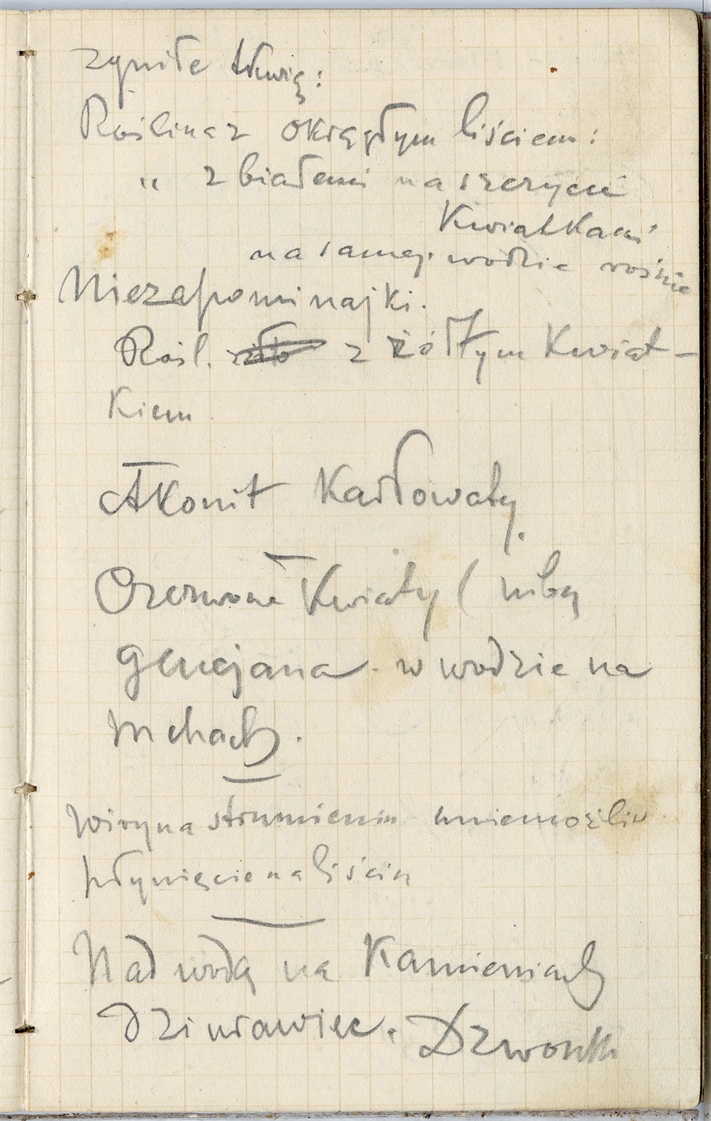 zgniłe tkwią:
Roślina z okrągłym liściem:
„ z białemi na szczycie
Kwiatkami
na samej wodzie rośnie
Niezapominajki.
Rośl. z żółtym Kwiat-
Kiem
Akonit Karłowaty.
Czerwone Kwiaty ( niby
gencjana. w wodzie na
mchach.
wiry na strumieniu uniemożliw
płynięcie na liściu
Nad wodą na Kamieniach
Dziurawiec. Dzwonki